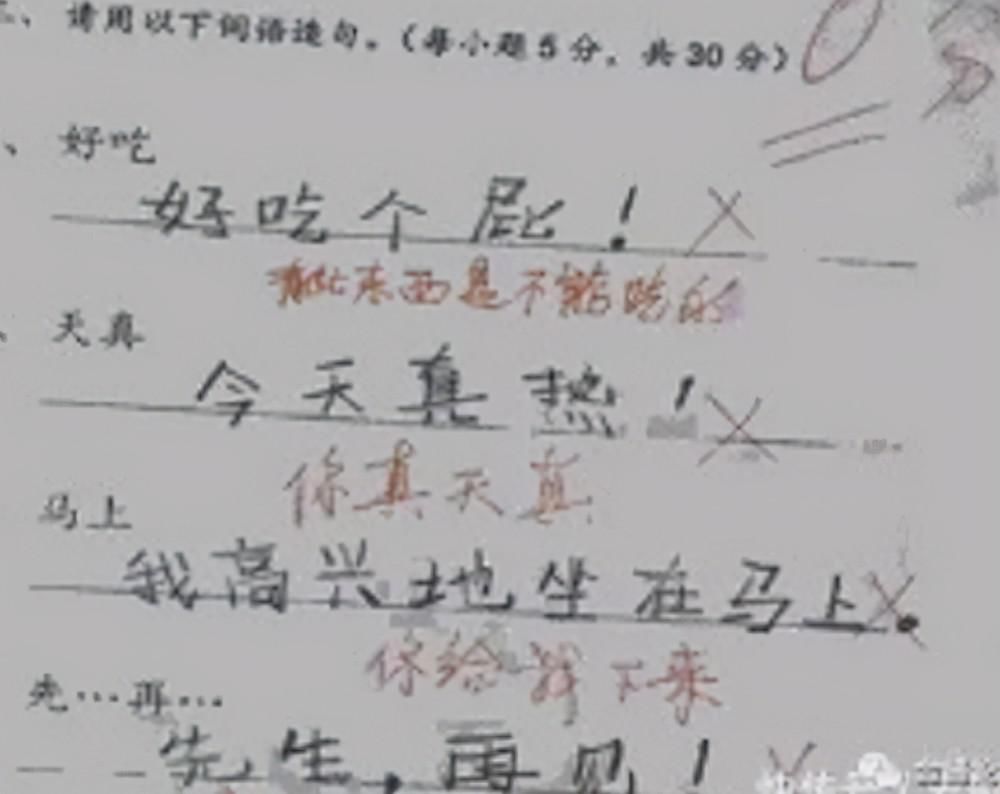 、请用以下词语造句。（每小题5分，共30分）
、好吃
好吃个屁！
有些东西是不能吃的
、天真
今天真热！
你真天真
马上
我高兴地坐在马上。
你给我下来
先…再…
先生，再见！